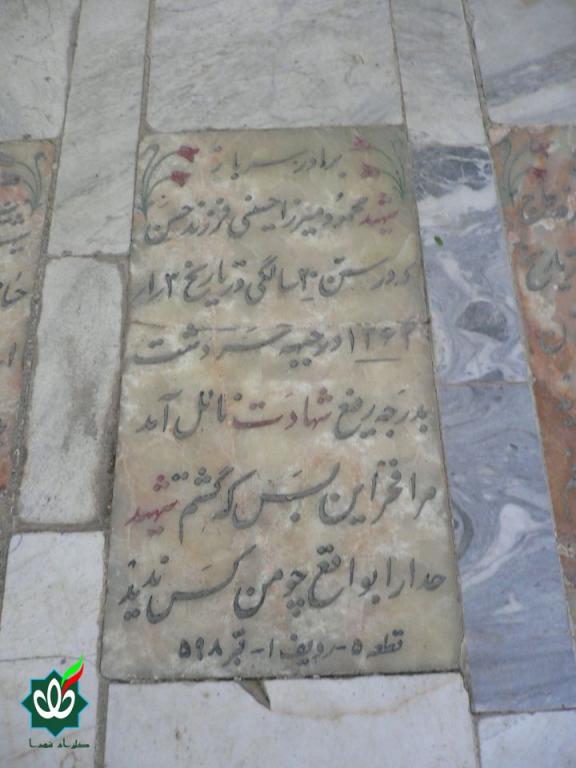 برادر سرباز
شهید محمود میرزا حسنی فرزند حسن
که در سن ۲۰ سالگی در تاریخ
۱۳۶۴ در جبهه سردشت
بدرجه رفیع شهادت نائل آمد
مرا فخر این بس که گشتم شهید
خدا را بواقع چو من کس ندید
قطعه ۵ - ردیف ۱ - قبر ۵۹۸
گلزار شهدا